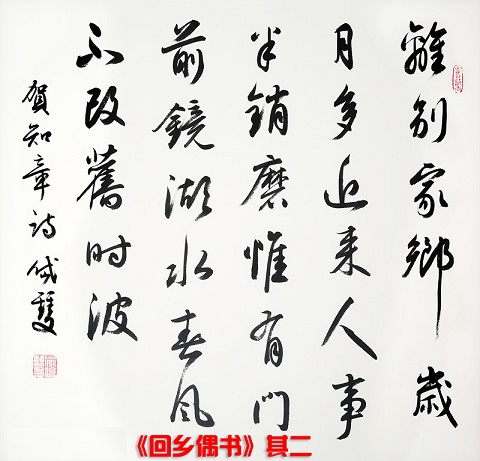 離别家鄉歲
月多近来人事
半銷磨惟有門
前鏡湖水春风
不改舊时波
賀知章诗
《回乡偶书》其二